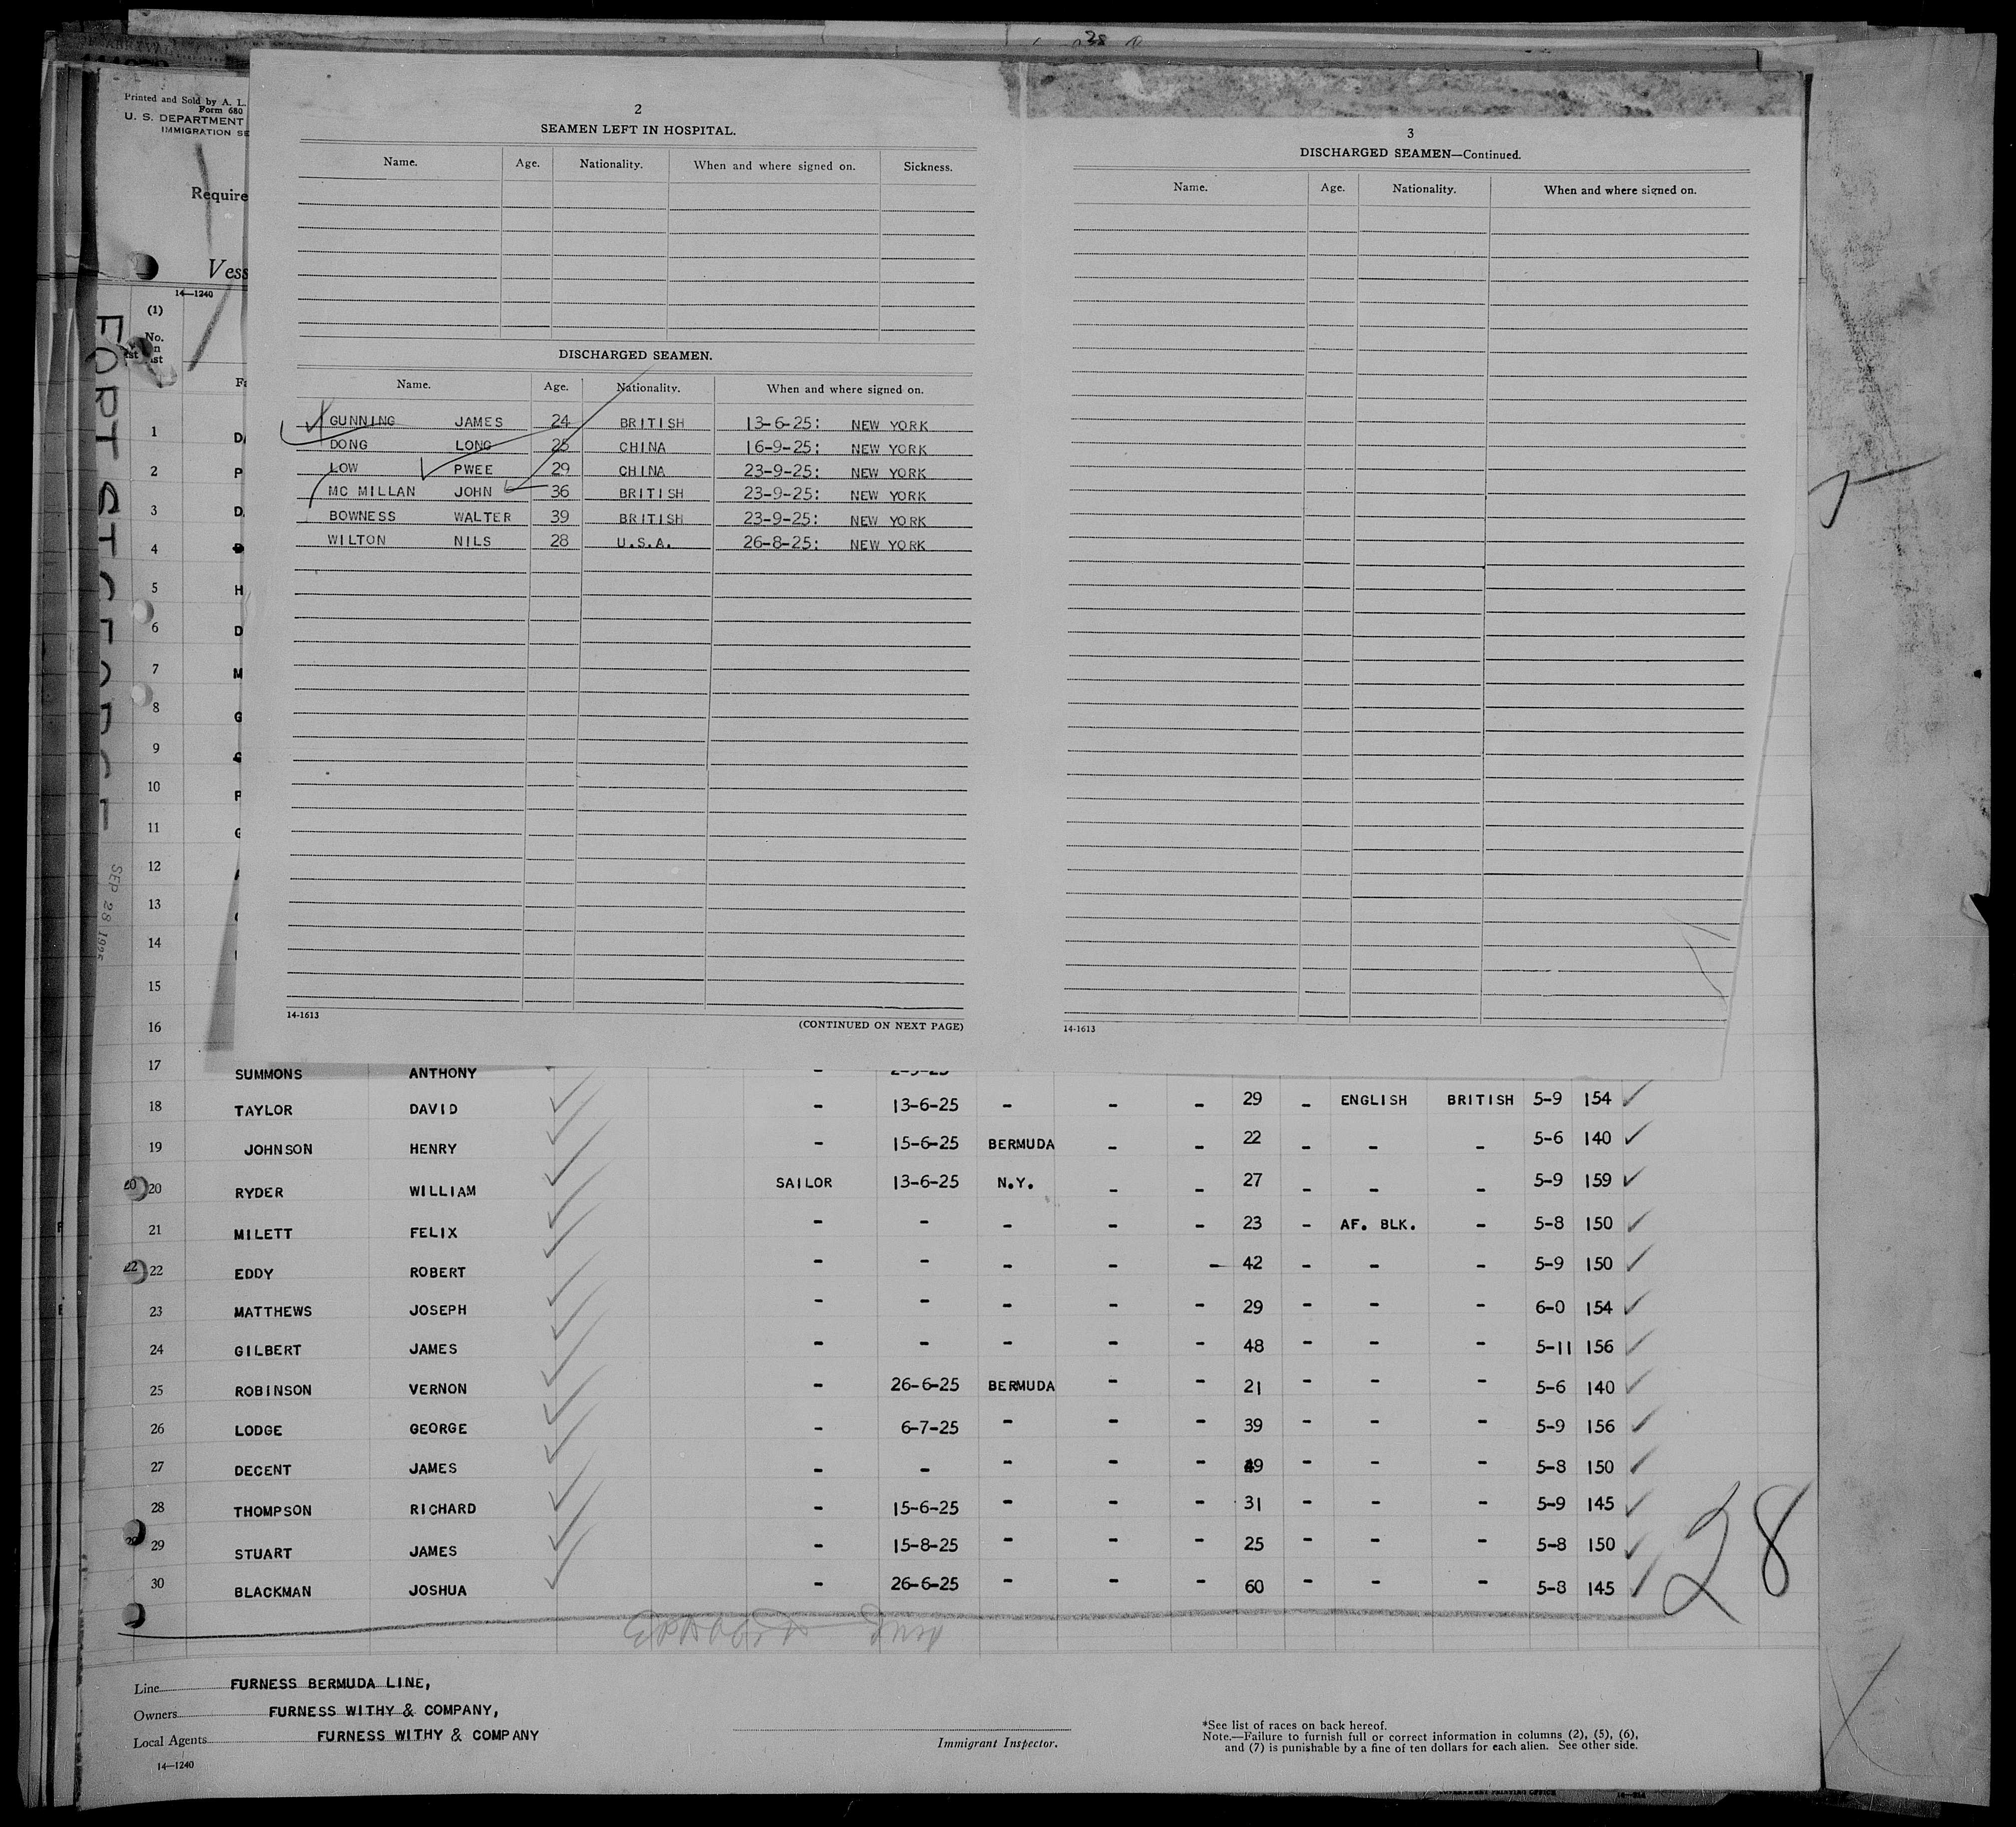 28
Printed and Sold by A. L.
Form 680
U. S. DEPARTMENT
IMMIGRATION SE
Require
Vess
14—1240
(1)
No.
FORT ST. GEORGE
SEP 28 1925
2
SEAMEN LEFT IN HOSPITAL.
Name. Age. Nationality. When and where signed on. Sickness.
DISCHARGED SEAMEN.
Name. Age. Nationality. When and where signed on.
GUNNING JAMES 24 BRITISH 13-6-25: NEW YORK
DONG LONG 25 CHINA 16-9-25: NEW YORK
LOW PWEE 29 CHINA 23-9-25: NEW YORK
MC MILLAN JOHN 36 BRITISH 23-9-25: NEW YORK
BOWNESS WALTER 39 BRITISH 23-9-25: NEW YORK
WILTON NILS 28 U.S.A. 26-8-25: NEW YORK
14-1613 (CONTINUED ON NEXT PAGE)
3
DISCHARGED SEAMEN—Continued.
Name. Age. Nationality. When and where signed on.
14-1613
1
2
3
4
5
6
7
8
9
10
11
12
13
14
15
16
17 SUMMONS ANTHONY -
18 TAYLOR DAVID - 13-6-25 - - - 29 - ENGLISH BRITISH 5-9 154
19 JOHNSON HENRY - 15-6-25 BERMUDA - - 22 - - - 5-6 140
20 20 RYDER WILLIAM SAILOR 13-6-25 N.Y. - - 27 - - - 5-9 159
21 MILETT FELIX - - - - - 23 - AF. BLK. - 5-8 150
22 22 EDDY ROBERT - - - - - 42 - - - 5-9 150
23 MATTHEWS JOSEPH - - - - - 29 - - - 6-0 154
24 GILBERT JAMES - - - - - 48 - - - 5-11 156
25 ROBINSON VERNON - 26-6-25 BERMUDA - - 21 - - - 5-6 140
26 LODGE GEORGE - 6-7-25 - - - 39 - - - 5-9 156
27 DECENT JAMES - - - - - 49 - - - 5-8 150
28 THOMPSON RICHARD - 15-6-25 - - - 31 - - - 5-9 145
29 STUART JAMES - 15-8-25 - - - 25 - - - 5-8 150
30 BLACKMAN JOSHUA - 26-6-25 - - - 60 - - - 5-8 145
28
Line FURNESS BERMUDA LINE,
Owners FURNESS WITHY & COMPANY,
Local Agents FURNESS WITHY & COMPANY
14—1240
Immigrant Inspector.
*See list of races on back hereof.
Note.—Failure to furnish full or correct information in columns (2), (5), (6),
and (7) is punishable by a fine of ten dollars for each alien. See other side.